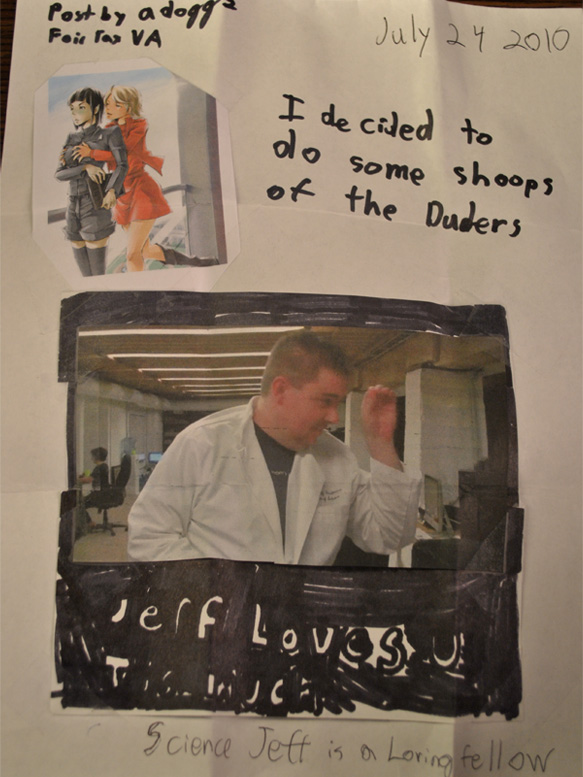 Post by adogg²
Fairfax VA
July 24 2010
I decided to
do some shoops
of the Duders
Jeff Loves U
This much
Science Jeff is a Loving fellow